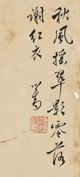 秋風搖翠影零落
謝紅衣